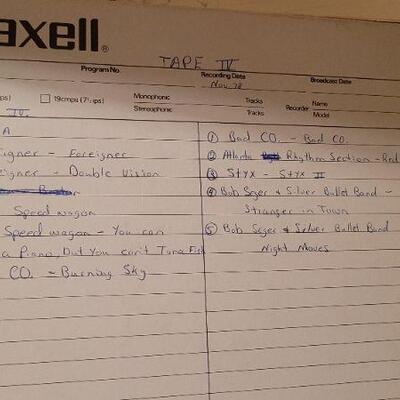 axell®
TAPE IV
Program No. Recording Date Broadcast Date
Nov. 78
ps) 19cmps (7½ ips) Monophonic Tracks Recorder Name
Stereophonic Tracks Model
IV.
A
igner - Foreigner
eigner - Double Vision
Speed wagon
Speed wagon - You can
a Piano, But you can't Tuna Fish
CO. - Burning Sky
① Bad CO. - Bad CO.
② Atlanta Rhythm Section - Red
③ Styx - Styx II
④ Bob Seger & Silver Bullet Band -
Stranger in Town
⑤ Bob Seger & Silver Bullet Band
Night Moves